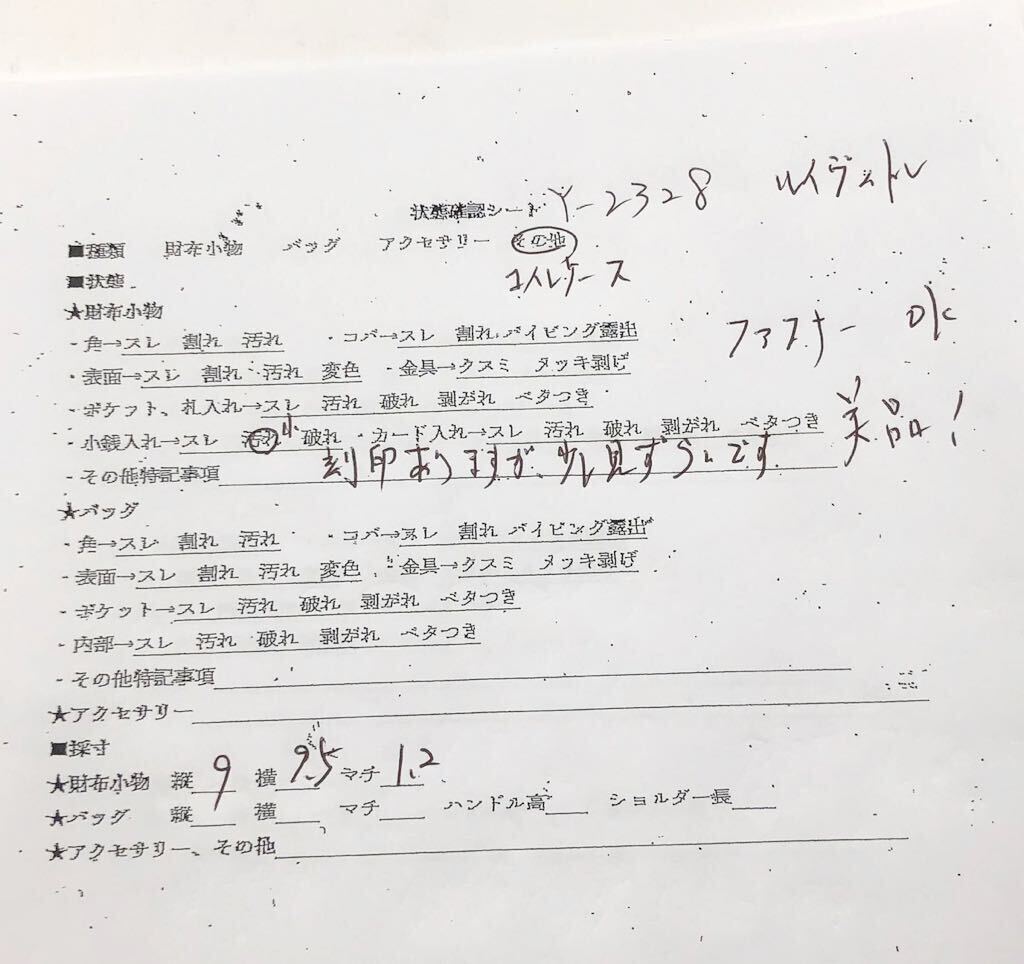 状態確認シート Y-2328 ルイヴィトン
■種類 財布小物 バッグ アクセサリー その他
■状態 コインケース
★財布小物
・角→スレ 割れ 汚れ ・コバ→スレ 割れ パイピング露出 ファスナー OK
・表面→スレ 割れ 汚れ 変色 ・金具→クスミ メッキ剥げ
・ポケット、札入れ→スレ 汚れ 破れ 剥がれ ベタつき
・小銭入れ→スレ 汚れ 小 破れ ・カード入れ→スレ 汚れ 破れ 剥がれ ベタつき 美品!
・その他特記事項 刻印ありますが、少し見ずらいです
★バッグ
・角→スレ 割れ 汚れ ・コバ→スレ 割れ パイピング露出
・表面→スレ 割れ 汚れ 変色 ・金具→クスミ メッキ剥げ
・ポケット→スレ 汚れ 破れ 剥がれ ベタつき
・内部→スレ 汚れ 破れ 剥がれ ベタつき
・その他特記事項
★アクセサリー
■採寸
★財布小物 縦 9 横 9.5 マチ 1.2
★バッグ 縦 横 マチ ハンドル高 ショルダー長
★アクセサリー、その他